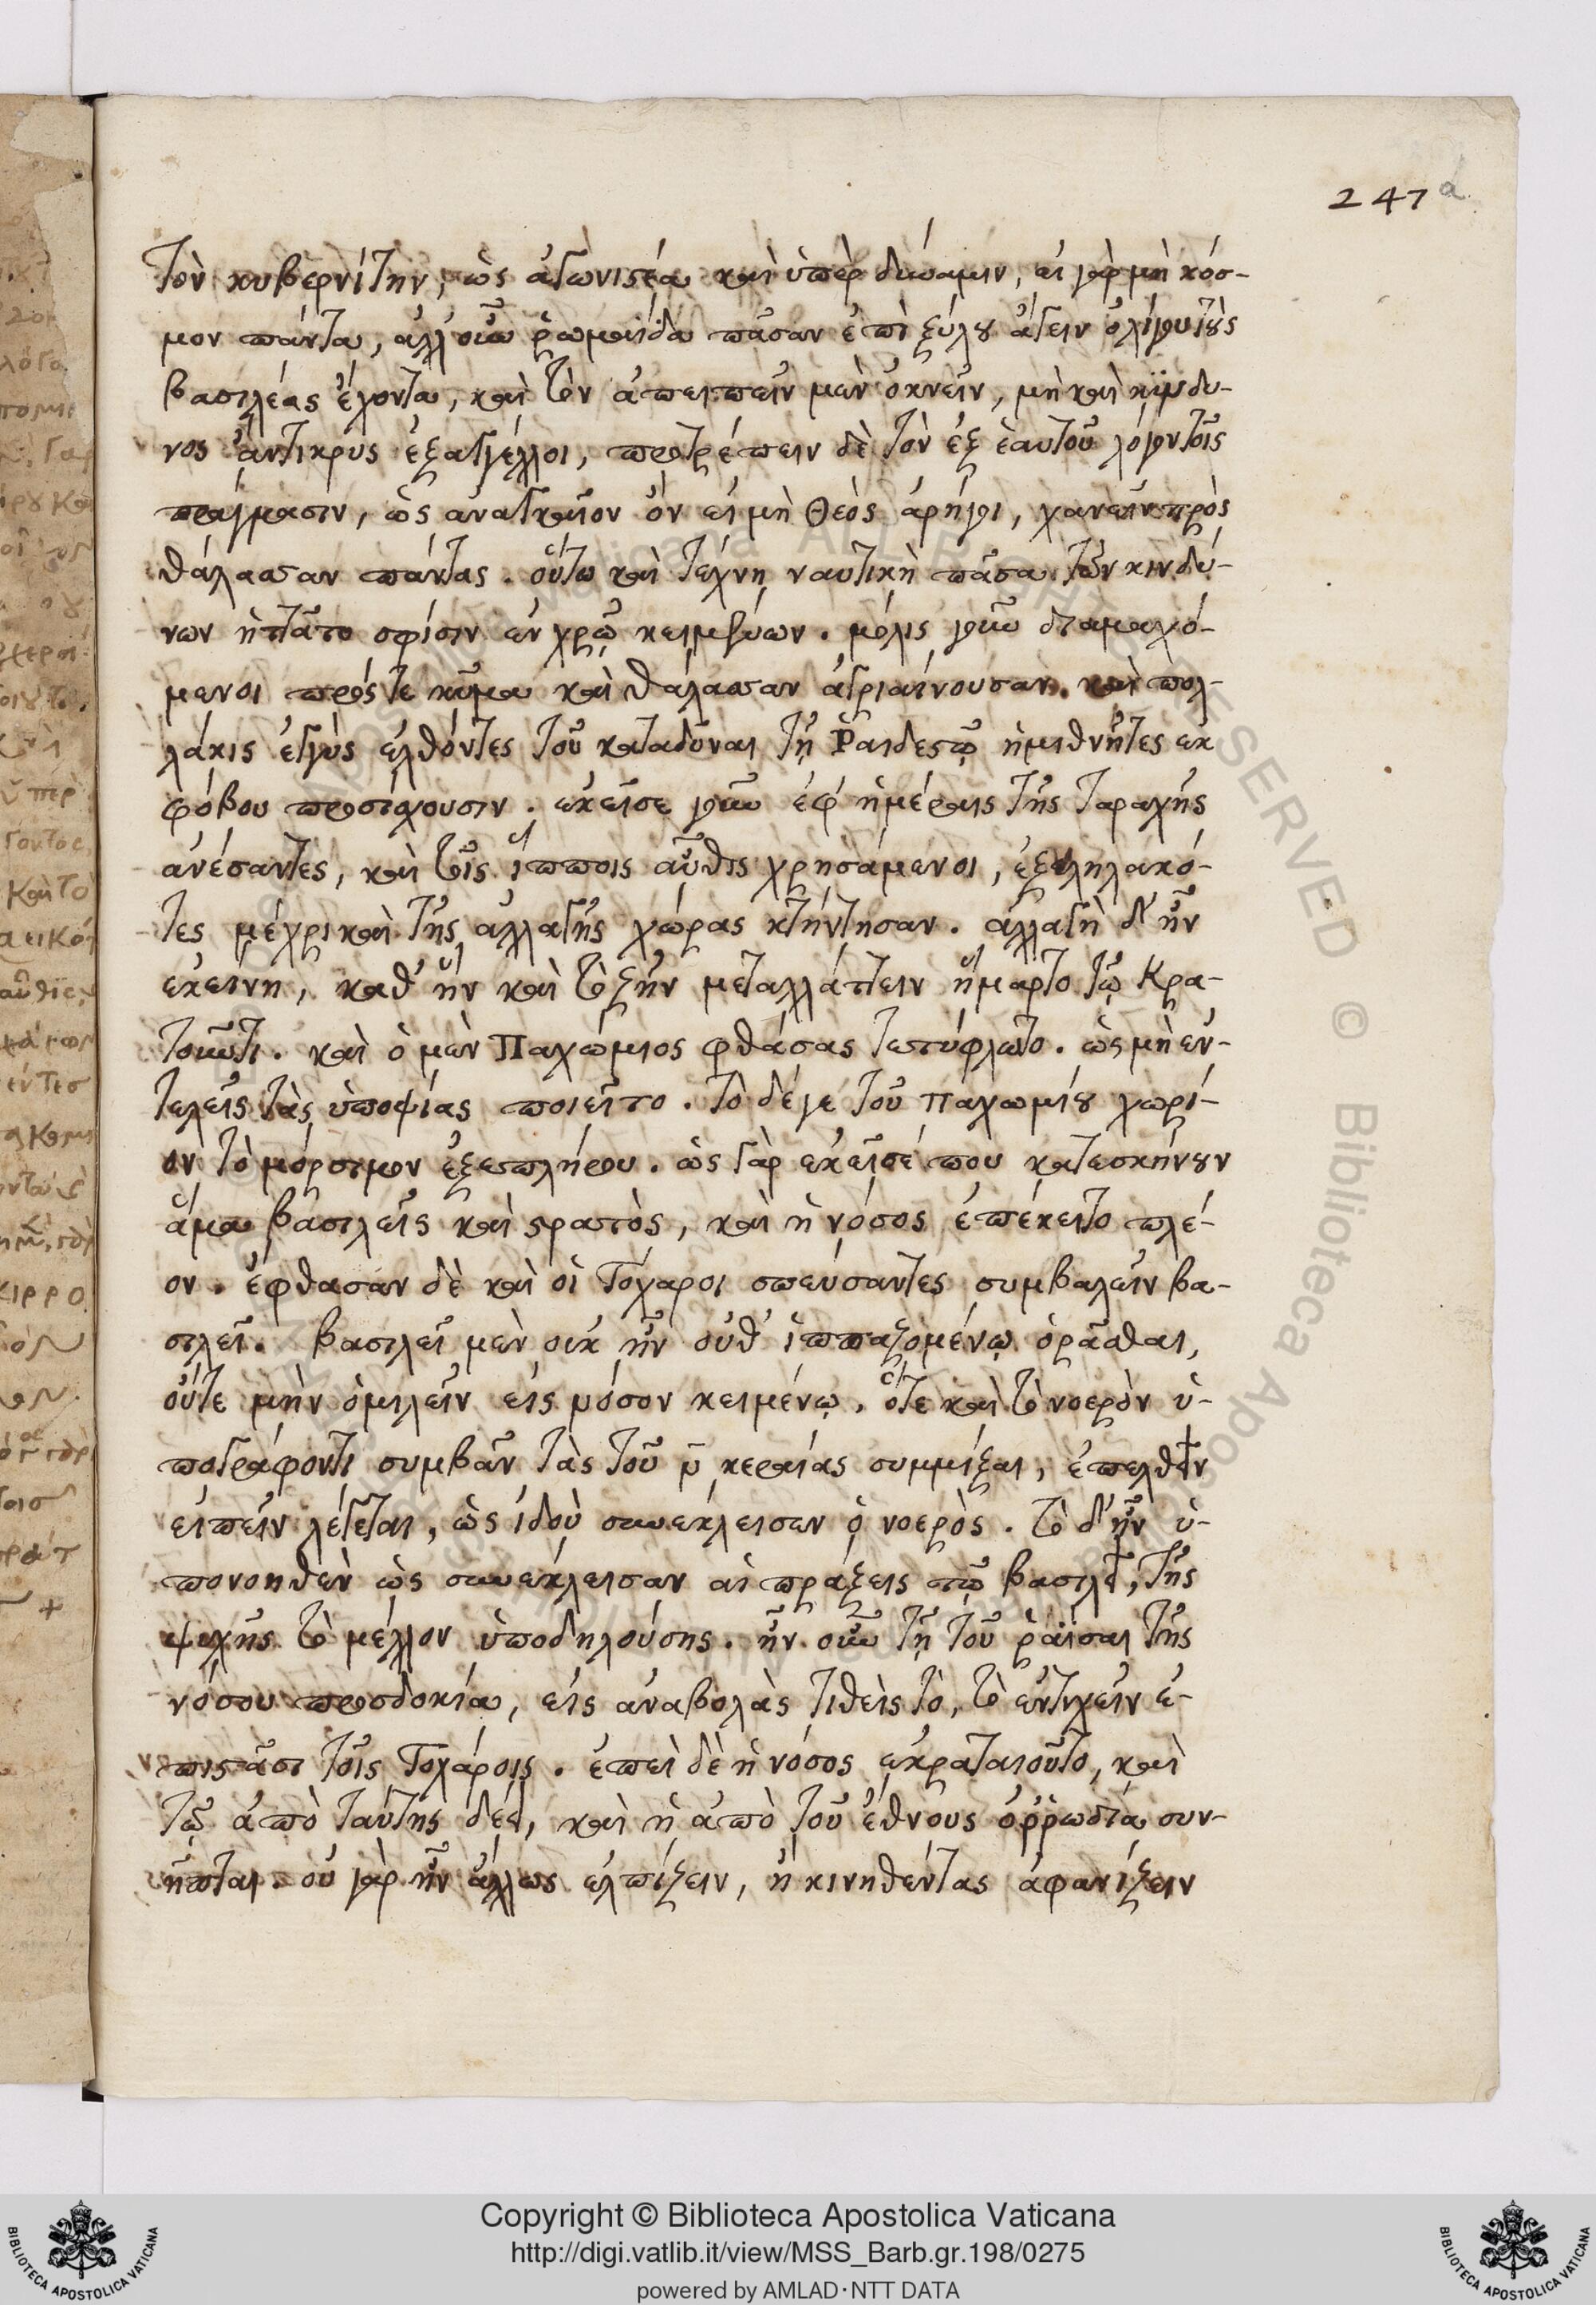 247 a
τὸν κυβερνίτην, ὡς ἀγωνιστέα καὶ ὑπὲρ δύναμιν, εἰ γὰρ μὴ κόσ-
μον πάντα, ἀλλ' οὖν ῥωμαΐδα πᾶσαν ἐπὶ ξύλου ἄγειν ὀλίγου τοὺς
βασιλέας ἔχοντα, καὶ τὸν ἀπειπεῖν μὲν ὀκνεῖν, μὴ καὶ κίνδυ-
νος ἄντικρυς ἐξαγγέλλοι, προτρέπειν δὲ τὸν ἐξ ἑαυτοῦ λόγον τοῖς
πράγμασιν, ὡς ἀναγκαῖον ὂν εἰ μὴ Θεὸς ἀρήγοι, χανεῖν πρὸς
θάλασσαν πάντας. οὕτω καὶ τέχνη ναυτικὴ πᾶσα τῶν κινδύ-
νων ἡττᾶτο σφίσιν ἐν χρῷ κειμένων. μόλις γοῦν διαμαχό-
μενοι πρός τε κῦμα καὶ θάλασσαν ἀγριαίνουσαν. καὶ πολ-
λάκις ἐγγὺς ἐλθόντες τοῦ καταδῦναι τῇ Ῥαιδεστῷ ἡμιθνῆτες ἐκ
φόβου προσίσχουσιν. ἐκεῖσε γοῦν ἐφ' ἡμέραις τῆς ταραχῆς
ἀνέσαντες, καὶ τοῖς ἵπποις αὖθις χρησάμενοι, ἐξεληλακό-
τες μέχρι καὶ τῆς ἀλλαγῆς χώρας κτήντησαν. ἀλλαγὴ δ' ἦν
ἐκείνη, καθ' ἣν καὶ τὸ ζῆν μεταλλάττειν ἥμαρτο τῷ Κρα-
τοῦντι. καὶ ὁ μὲν Παχώμιος φθάσας τετύφλωτο. ὡς μὴ ἐν-
τελεῖς τὰς ὑποψίας ποιεῖτο. τὸ δέ γε τοῦ παχωμίου χωρί-
ον τὸ μόρσιμον ἐξεπλήρου. ὡς γὰρ ἐκεῖσέ που κατεσκήνουν
ἅμα βασιλεῖς καὶ στρατὸς, καὶ ἡ νόσος ἐπέκειτο πλέ-
ον. ἔφθασαν δὲ καὶ οἱ Τόχαροι σπεύσαντες συμβαλεῖν βα-
σιλεῖ. βασιλεῖ μὲν οὐκ ἦν οὔθ' ἱππαζομένῳ ὁρᾶσθαι,
οὔτε μὴν ὁμιλεῖν εἰς μόσον κειμένῳ. ὅτε καὶ τὸ νοερὸν ὑ-
πογράφοντι συμβᾶν τὰς τοῦ ῡ κεραίας συμμίξαι, ἐπελθεῖν
εἰπεῖν λέγεται, ὡς ἰδοὺ συνέκλεισεν ὁ νοερὸς. τὸ δ' ἦν ὑ-
πονοηθὲν ὡς συνέκλεισαν αἱ πράξεις τῷ βασιλεῖ, τῆς
ψυχῆς τὸ μέλλον ὑποδηλούσης. ἦν οὖν τῇ τοῦ ῥαΐσαι τῆς
νόσου προσδοκίᾳ, εἰς ἀναβολὰς τιθεὶς τὸ, τὸ ἐντυχεῖν ἐ-
πιστᾶσι τοῖς Τοχάροις. ἐπεὶ δὲ ἡ νόσος ἐκραταιοῦτο, καὶ
τῷ ἀπὸ ταύτης δέει, καὶ ἡ ἀπὸ τοῦ ἔθνους ὀῤῥωδία συν-
ῆπται. οὐ γὰρ ἦν ἄλλως ἐλπίζειν, ἢ κινηθέντας ἀφανίζειν
Copyright © Biblioteca Apostolica Vaticana
http://digi.vatlib.it/view/MSS_Barb.gr.198/0275
powered by AMLAD·NTT DATA
BIBLIOTECA APOSTOLICA VATICANA
BIBLIOTECA APOSTOLICA VATICANA